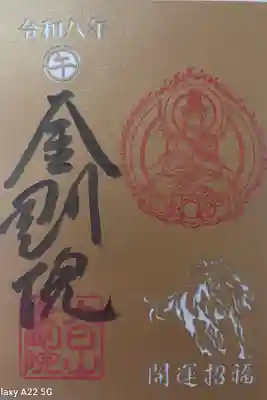 令和八年
午
金剛院
開運招福
laxy A22 5G